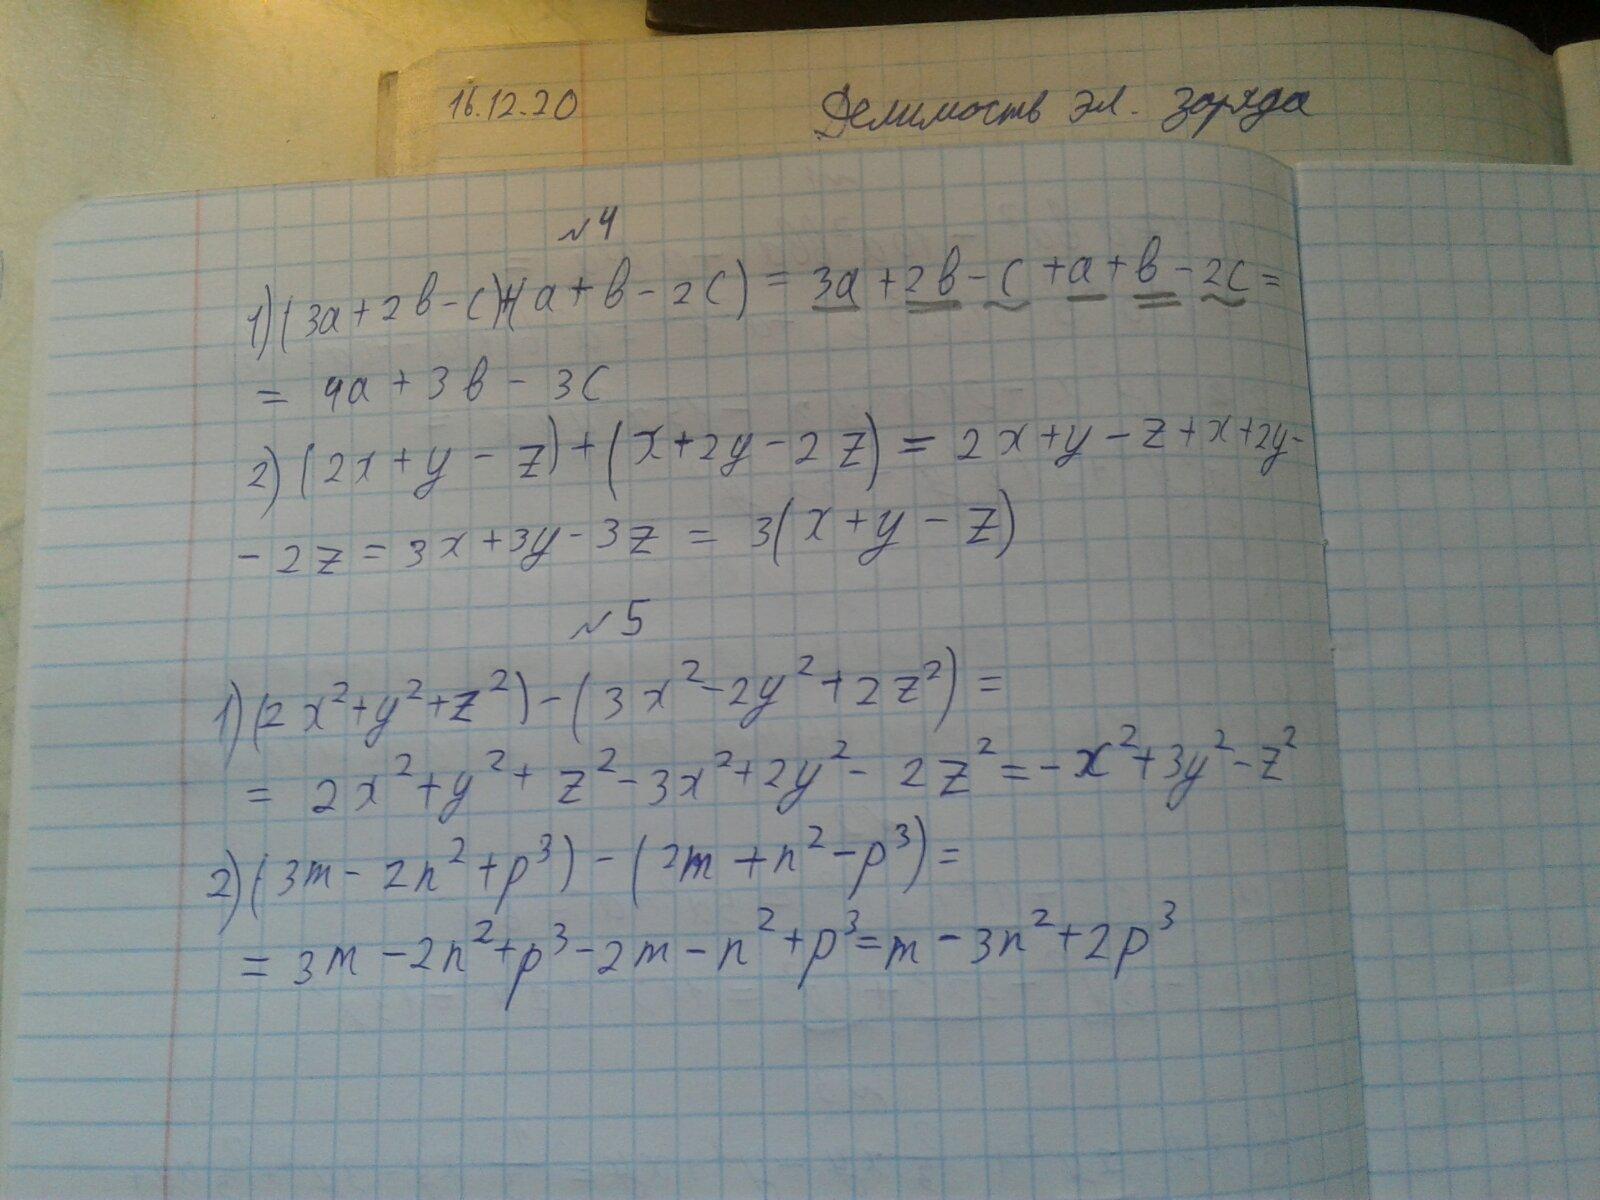 16.12.20 Делимость эл. заряда
№4
1) (3a + 2b - c) + (a + b - 2c) = 3a + 2b - c + a + b - 2c =
= 4a + 3b - 3c
2) (2x + y - z) + (x + 2y - 2z) = 2x + y - z + x + 2y -
- 2z = 3x + 3y - 3z = 3(x + y - z)
№5
1) (2x² + y² + z²) - (3x² - 2y² + 2z²) =
= 2x² + y² + z² - 3x² + 2y² - 2z² = -x² + 3y² - z²
2) (3m - 2n² + p³) - (2m + n² - p³) =
= 3m - 2n² + p³ - 2m - n² + p³ = m - 3n² + 2p³